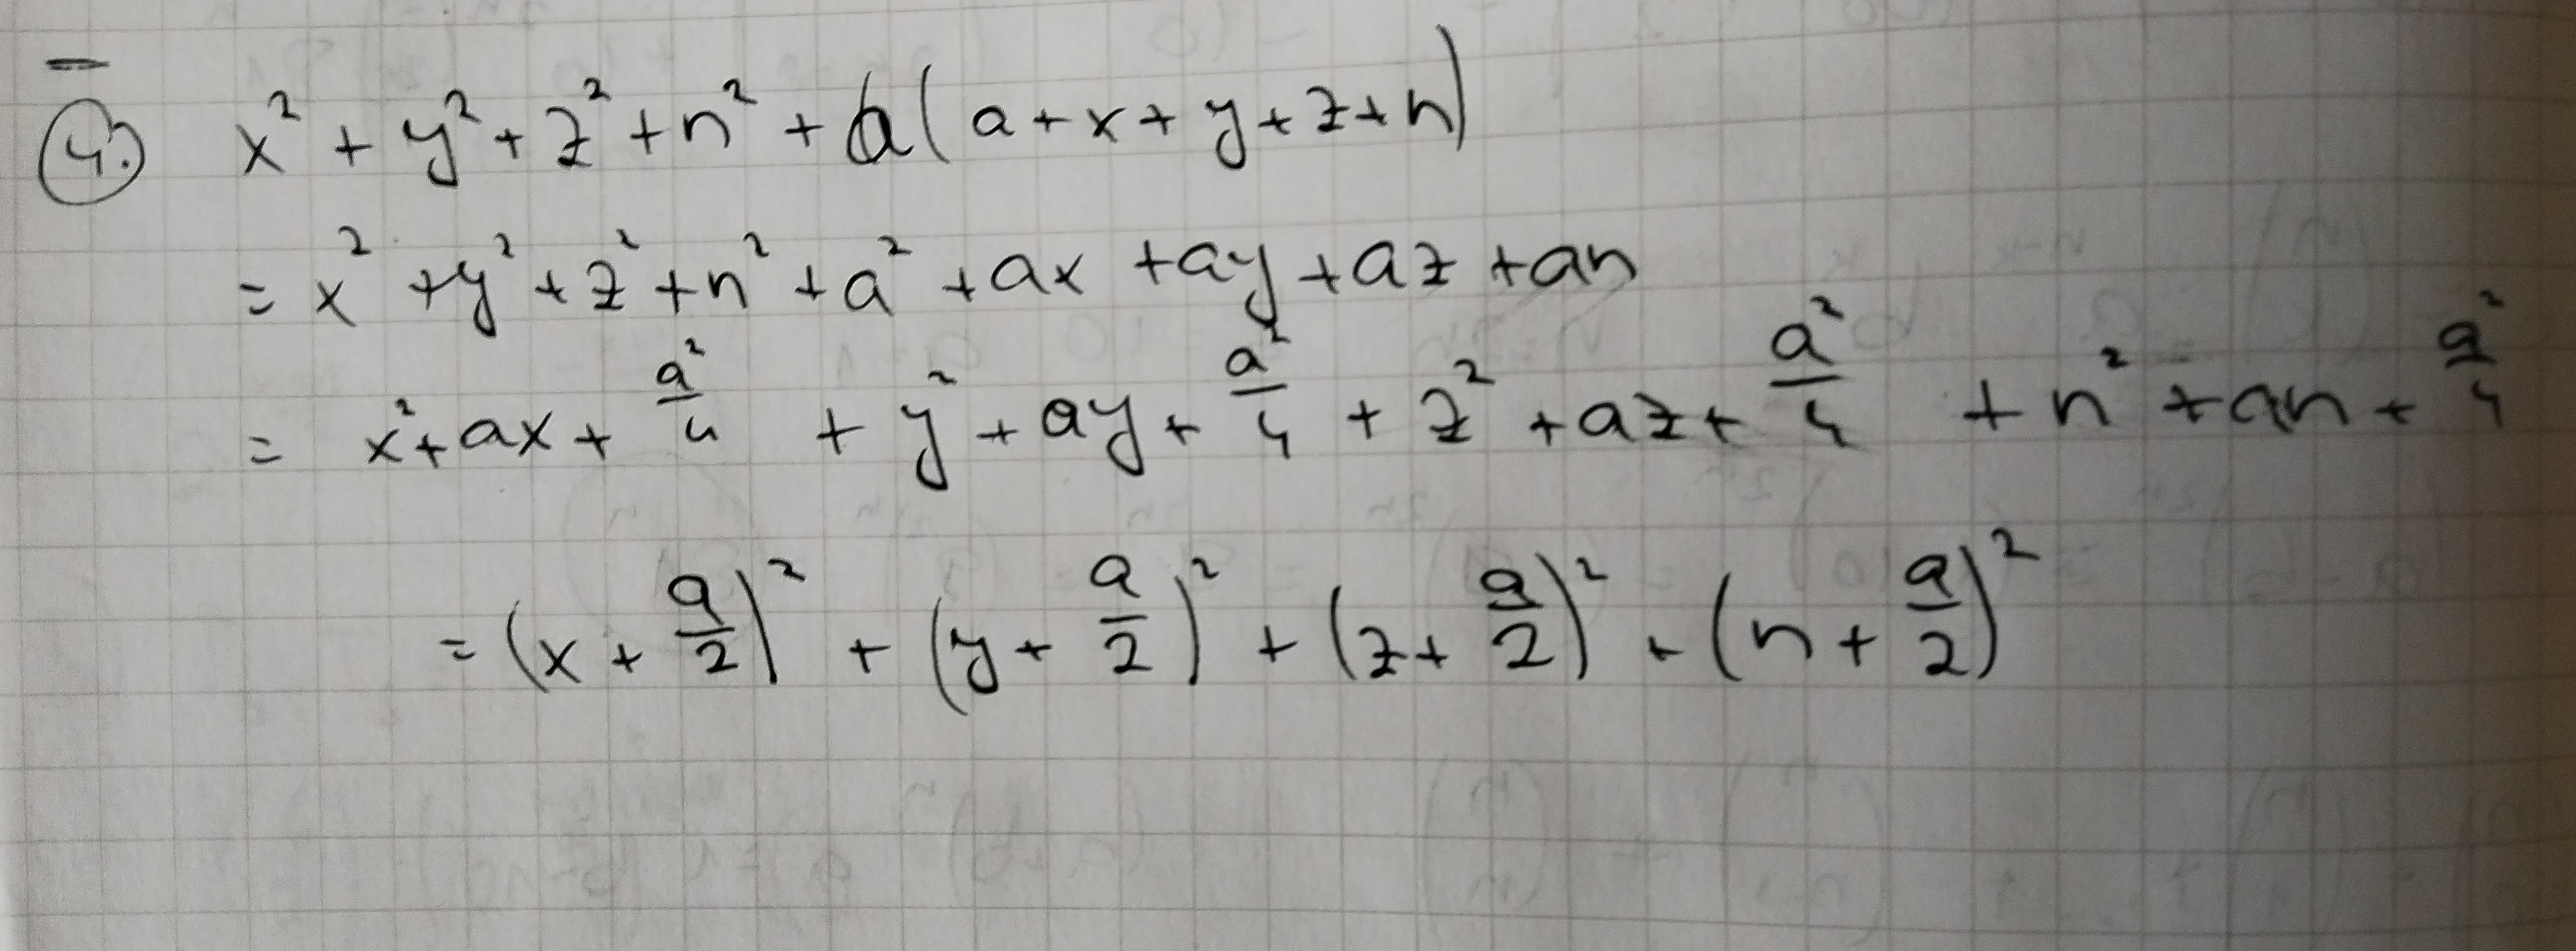 4.) x² + y² + z² + n² + a(a+x+y+z+n)
= x² + y² + z² + n² + a² + ax + ay + az + an
= x² + ax + a²/4 + y² + ay + a²/4 + z² + az + a²/4 + n² + an + a²/4
= (x + a/2)² + (y + a/2)² + (z + a/2)² + (n + a/2)²